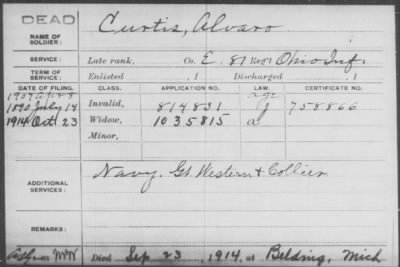 DEAD
NAME OF SOLDIER: Curtis, Alvaro
SERVICE: Late rank, Co. E. 81 Reg't Ohio Inf.
TERM OF SERVICE: Enlisted , 1 Discharged , 1
DATE OF FILING. CLASS. APPLICATION NO. LAW. CERTIFICATE NO.
1890 July 14 Invalid, 814831 J 758866
1914 Oct 23 Widow, 1035815 a
Minor,
ADDITIONAL SERVICES: Navy. Gt. Western & Collier
REMARKS:
Died Sep 23, 1914, at Belding, Mich